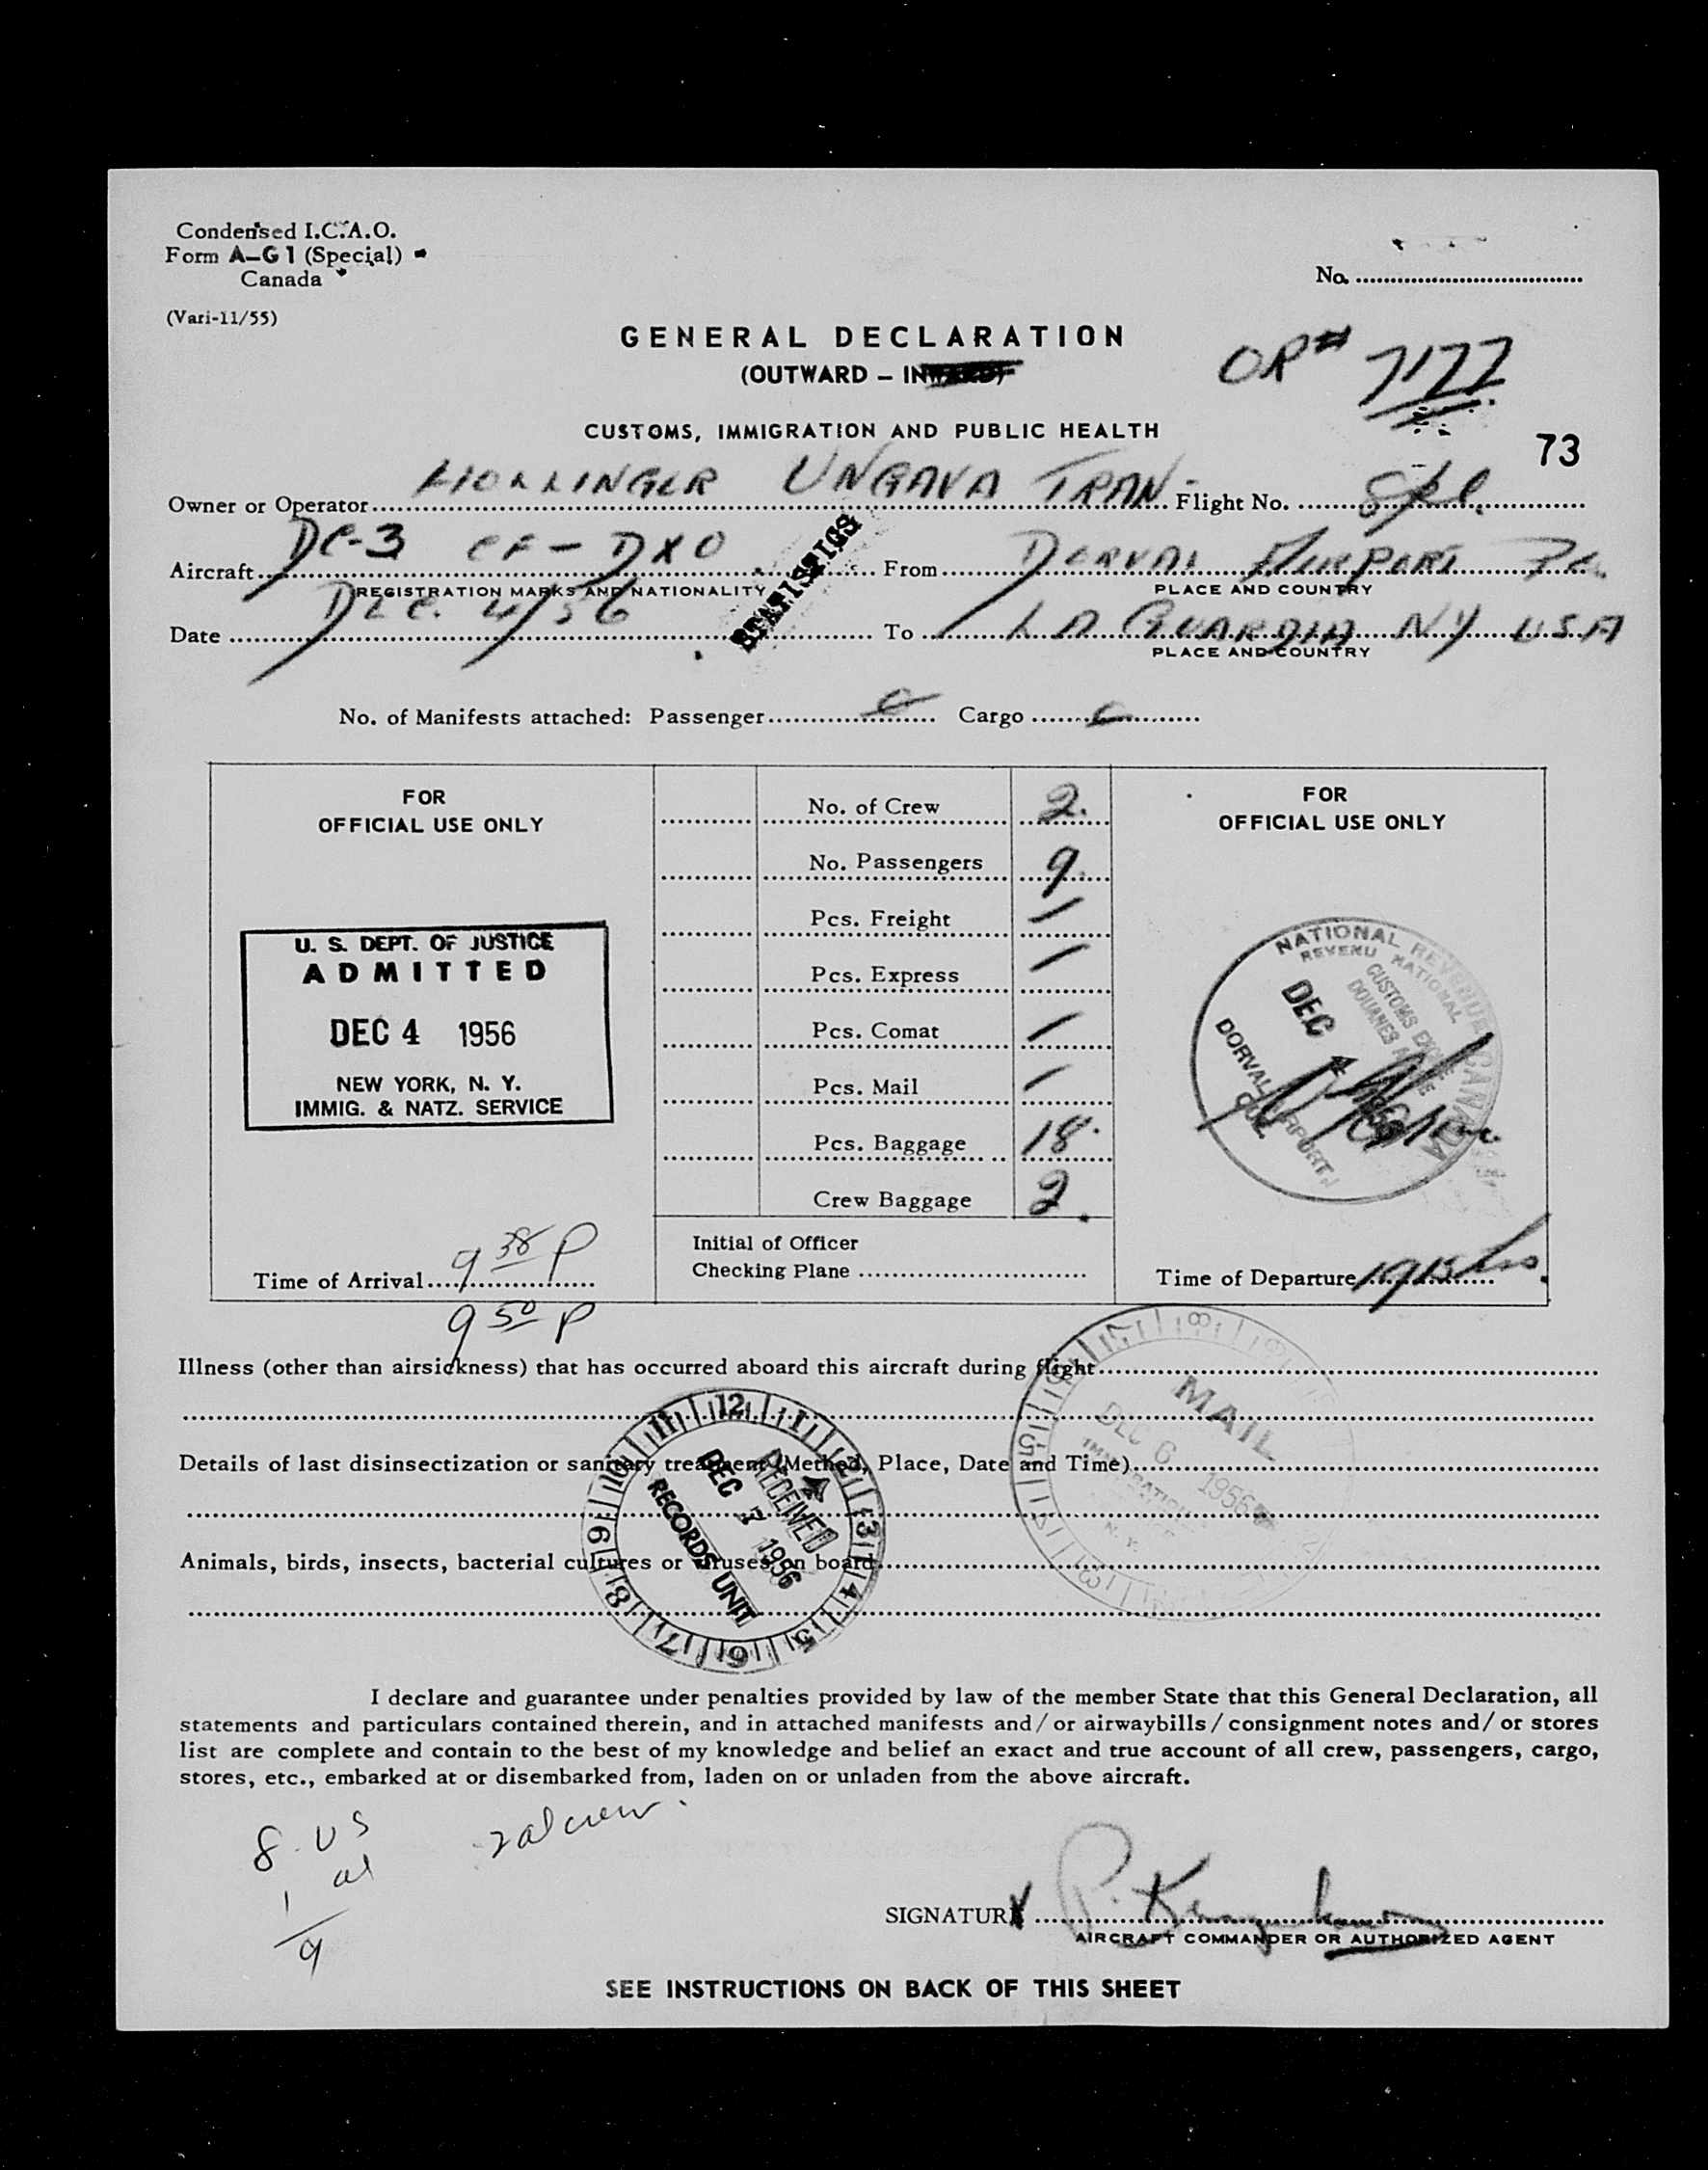 Condensed I.C.A.O.
Form A-G1 (Special)
Canada
(Vari-11/55)
No. ..........
GENERAL DECLARATION
(OUTWARD – INWARD)
OR# 7177
CUSTOMS, IMMIGRATION AND PUBLIC HEALTH
73
Owner or Operator HOLLINGER UNGAVA TRAN- Flight No. Spl.
Aircraft DC-3 CF-DXO From DORVAL AIRPORT
REGISTRATION MARKS AND NATIONALITY PLACE AND COUNTRY
STATISTICS
Date DEC. 4/56 To LA GUARDIA NY USA
PLACE AND COUNTRY
No. of Manifests attached: Passenger Cargo
FOR
OFFICIAL USE ONLY
U. S. DEPT. OF JUSTICE
ADMITTED
DEC 4 1956
NEW YORK, N. Y.
IMMIG. & NATZ. SERVICE
Time of Arrival 9 38 P
9 50 P
No. of Crew 2.
No. Passengers 9.
Pcs. Freight /
Pcs. Express /
Pcs. Comat /
Pcs. Mail /
Pcs. Baggage 18.
Crew Baggage 2.
Initial of Officer
Checking Plane ..........
FOR
OFFICIAL USE ONLY
NATIONAL REVENUE CANADA
REVENU NATIONAL
CUSTOMS EXCISE
DOUANES ACCISE
DEC 4 1956
DORVAL AIRPORT
QUE.
Time of Departure 1915 hrs.
Illness (other than airsickness) that has occurred aboard this aircraft during flight
MAIL
DEC 6 1956
IMMIGRATION
N. Y.
Details of last disinsectization or sanitary treatment (Method, Place, Date and Time)
12 1 2 3 4 5 6 7 8 9 10 11
RECEIVED
DEC 7 1956
RECORDS UNIT
Animals, birds, insects, bacterial cultures or viruses on board
I declare and guarantee under penalties provided by law of the member State that this General Declaration, all
statements and particulars contained therein, and in attached manifests and/or airwaybills/consignment notes and/or stores
list are complete and contain to the best of my knowledge and belief an exact and true account of all crew, passengers, cargo,
stores, etc., embarked at or disembarked from, laden on or unladen from the above aircraft.
8 US
1 al
9
2 al crew.
SIGNATURE
AIRCRAFT COMMANDER OR AUTHORIZED AGENT
SEE INSTRUCTIONS ON BACK OF THIS SHEET